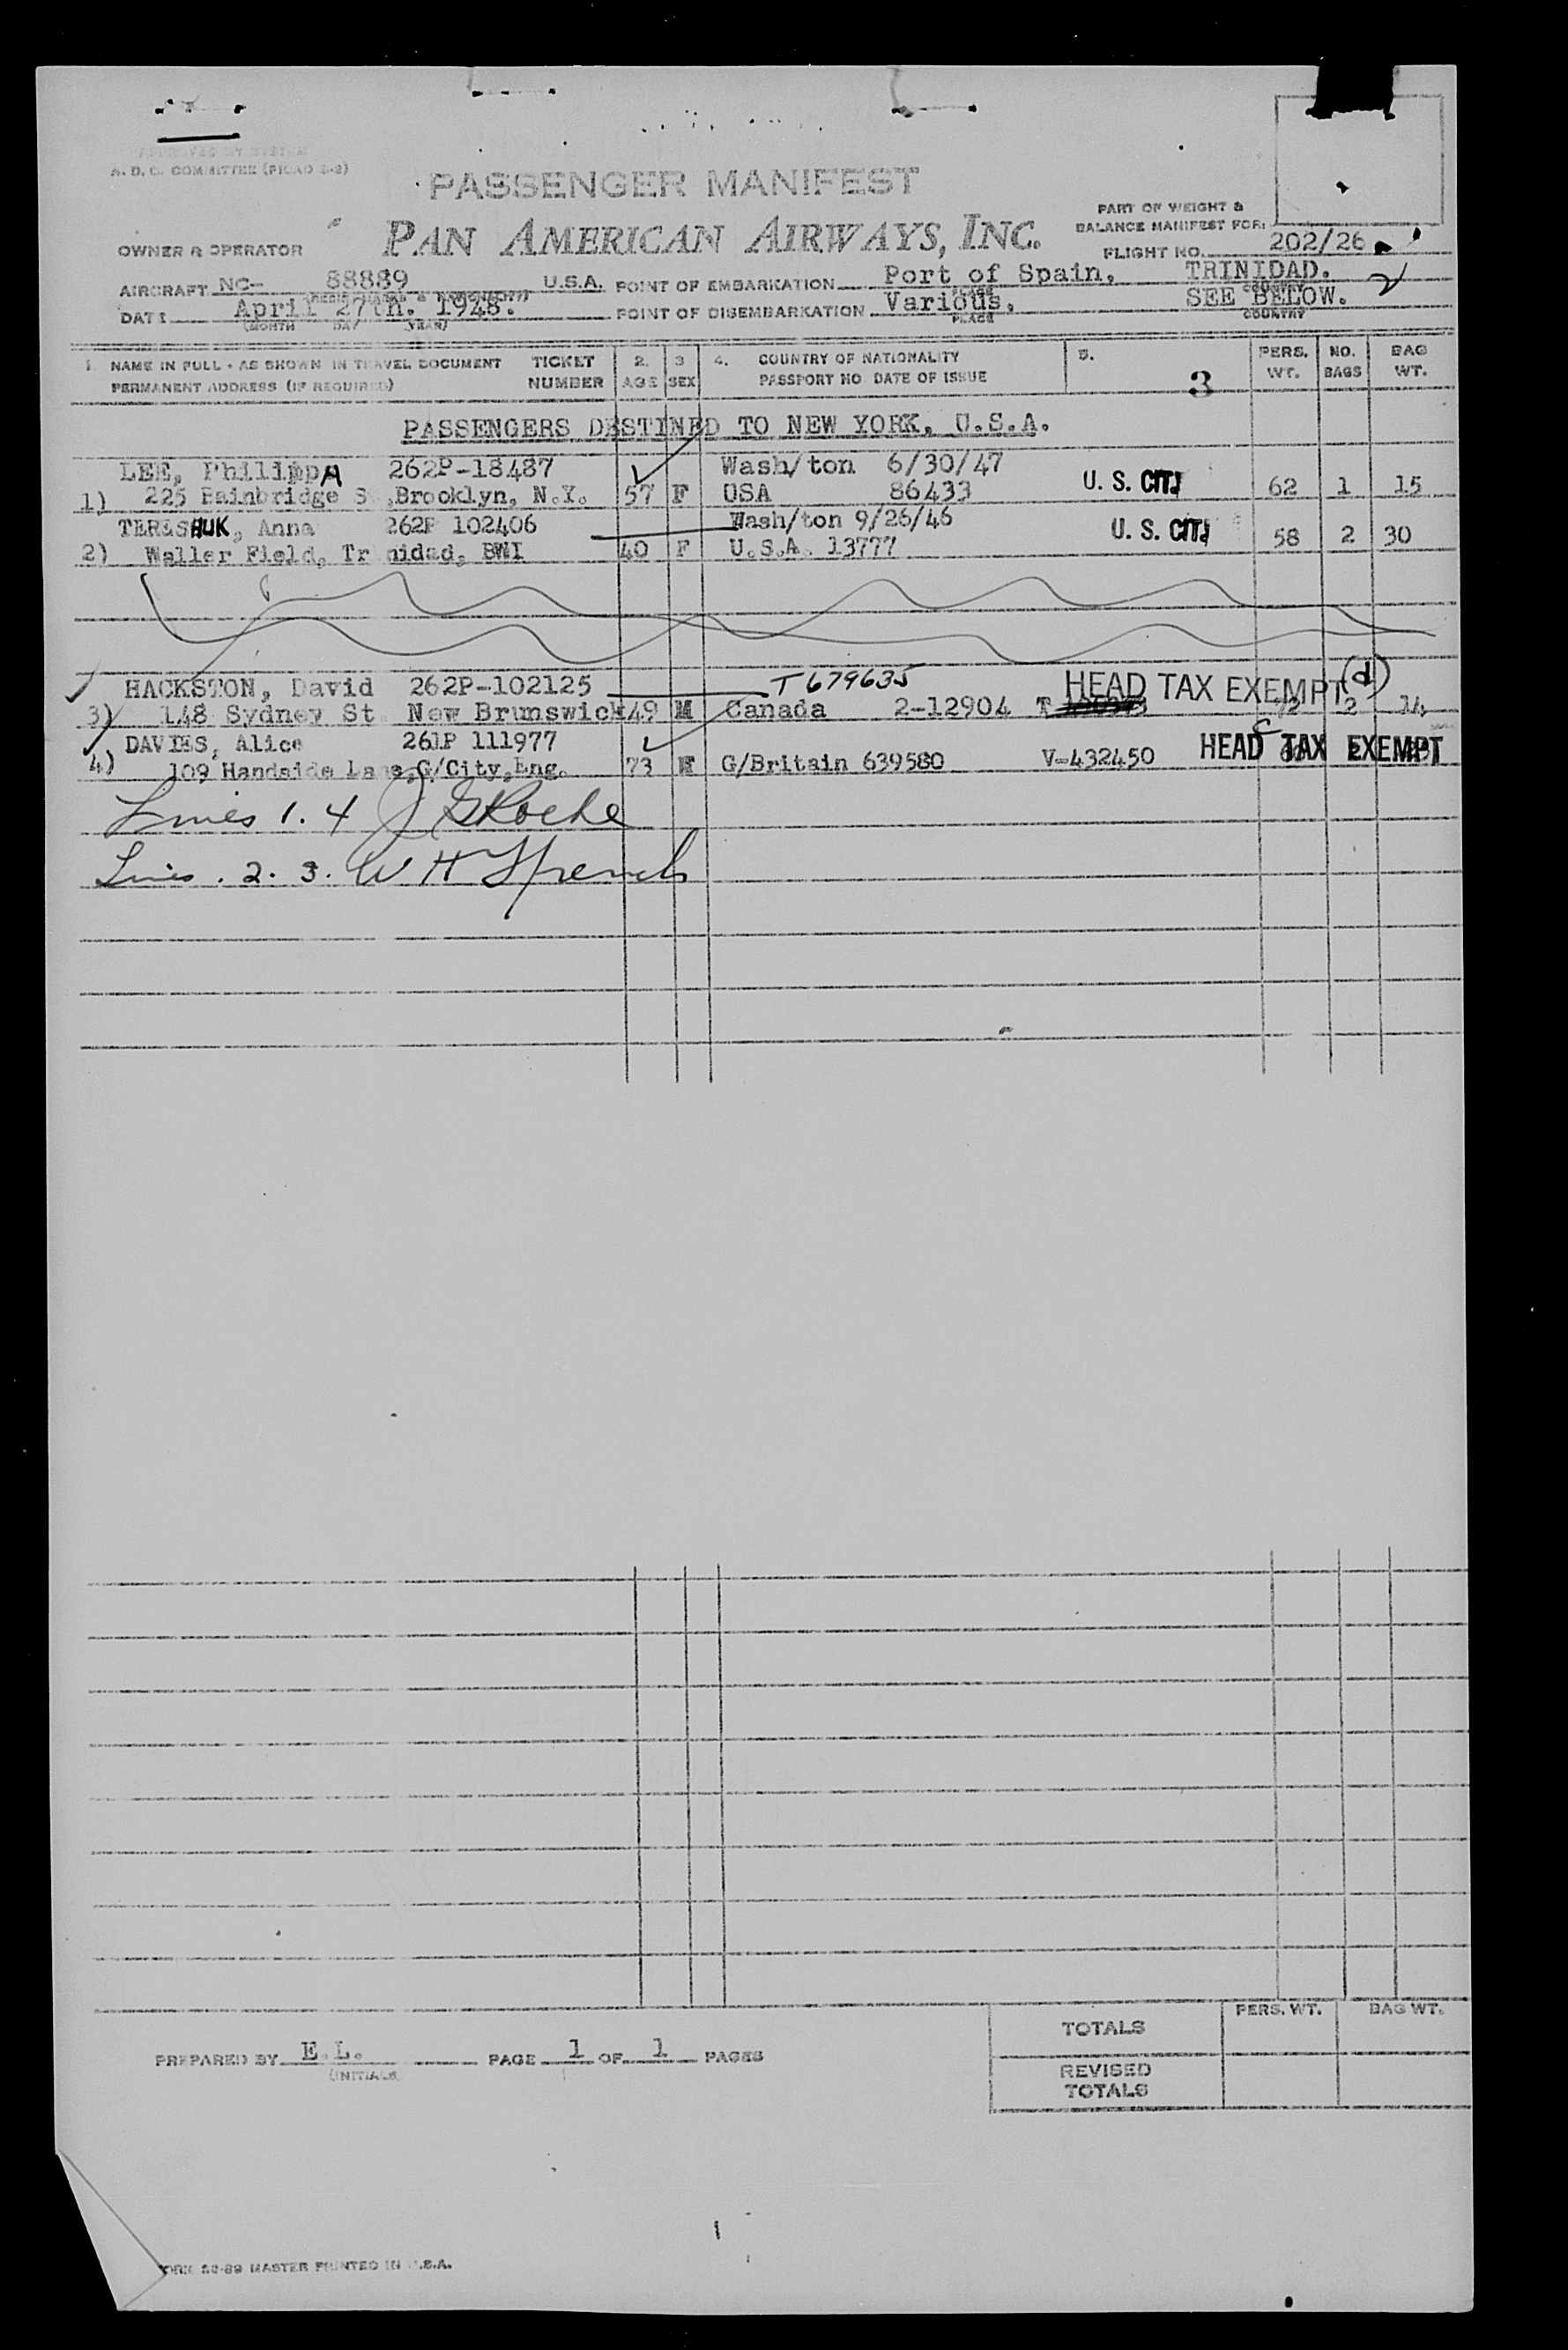 A. D. C. COMMITTEE
PASSENGER MANIFEST
PAN AMERICAN AIRWAYS, INC.
PART OF WEIGHT &
BALANCE MANIFEST FOR:
OWNER & OPERATOR
FLIGHT NO. 202/26
AIRCRAFT NC- 88889 U.S.A. POINT OF EMBARKATION Port of Spain, TRINIDAD.
2
DATE April 27th. 1948. POINT OF DISEMBARKATION Various. SEE BELOW.
(MONTH DAY YEAR) PLACE COUNTRY
1. NAME IN FULL - AS SHOWN IN TRAVEL DOCUMENT TICKET 2. 3 4. COUNTRY OF NATIONALITY 5. PERS. NO. BAG
PERMANENT ADDRESS (IF REQUIRED) NUMBER AGE SEX PASSPORT NO. DATE OF ISSUE 3 WT. BAGS WT.
PASSENGERS DESTINED TO NEW YORK, U.S.A.
LEE, PhilippA 262P-18487 Wash/ton 6/30/47
1) 225 Bainbridge S ,Brooklyn, N.Y. 57 F USA 86433 U. S. CIT. 62 1 15
TERESHUK, Anna 262P 102406 Wash/ton 9/26/46
2) Waller Field, Tr nidad, BWI 40 F U.S.A. 13777 U. S. CIT. 58 2 30
HACKSTON, David 262P-102125 T 679635 HEAD TAX EXEMPT (d)
3) 148 Sydney St New Brunswick 49 M Canada 2-12904 T 72 2 14
DAVIES, Alice 261P 111977
4) 109 Handside Lane,G/City,Eng. 73 F G/Britain 639580 V-432450 HEAD TAX EXEMPT
Lines 1. 4 J G Roche
Lines . 2. 3. W H French
TOTALS PERS. WT. BAG WT.
PREPARED BY E.L. PAGE 1 OF 1 PAGES
(INITIALS
REVISED
TOTALS
ORM MASTER PRINTED IN U.S.A.